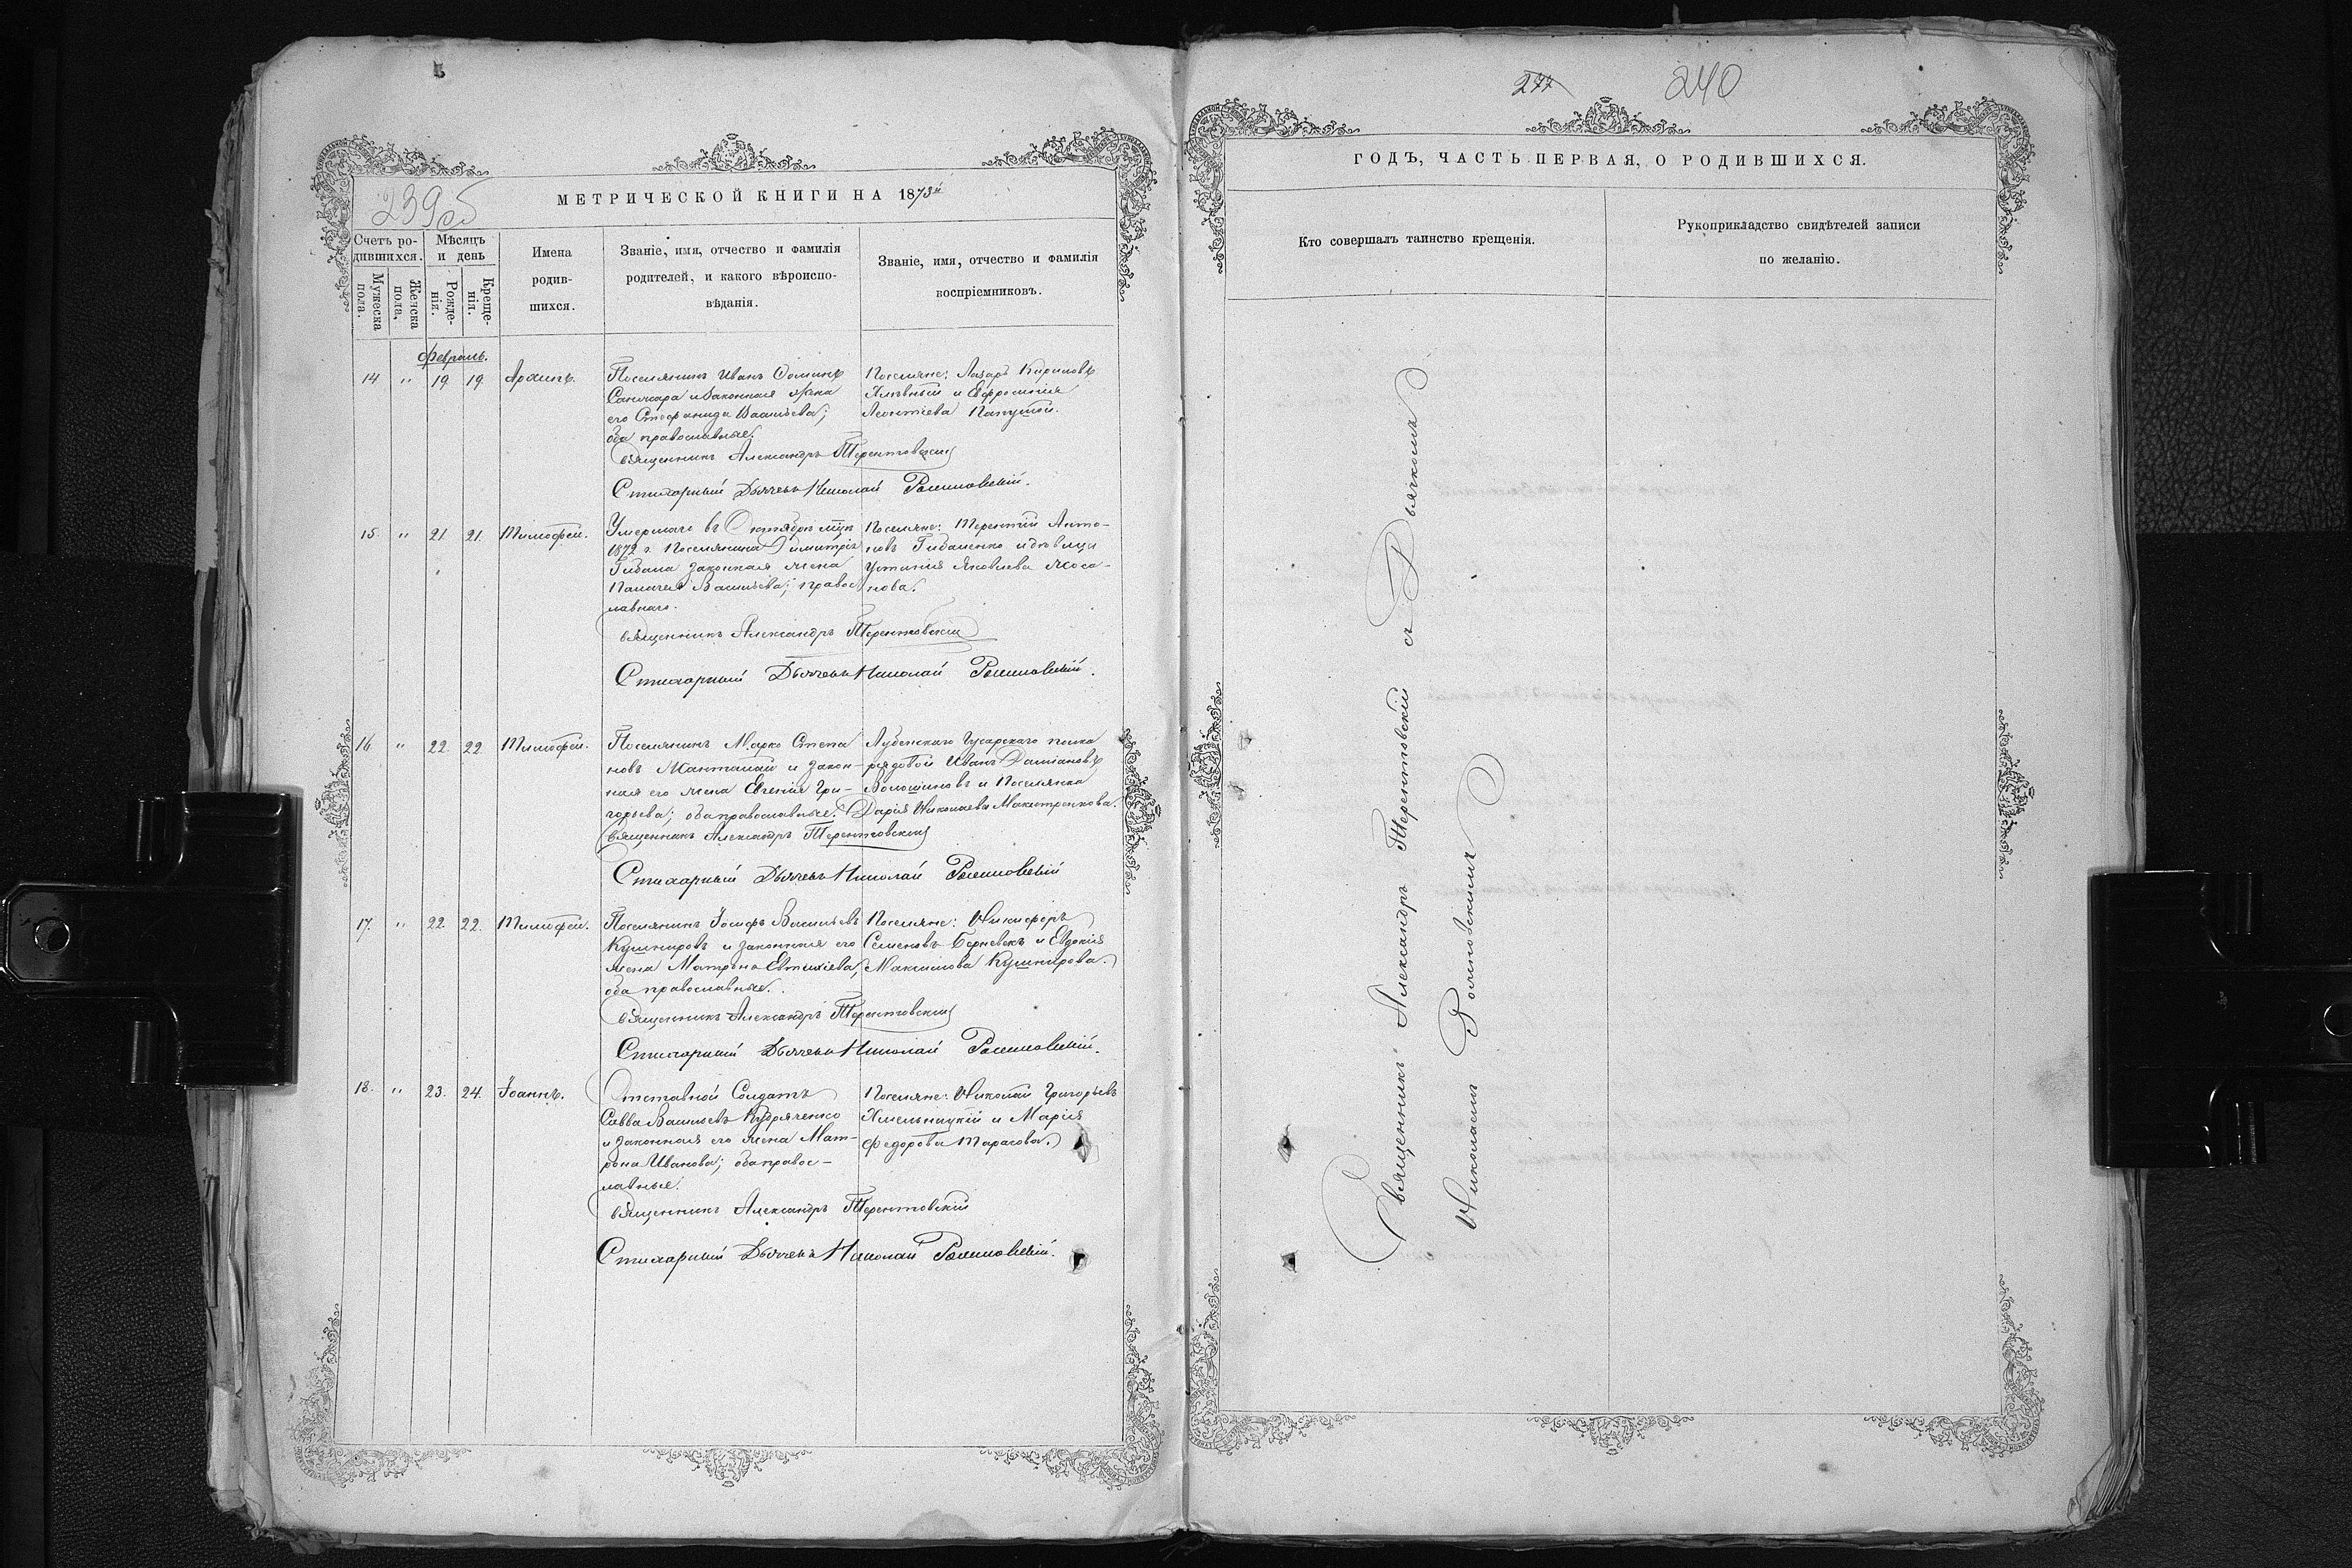 239об
МЕТРИЧЕСКОЙ КНИГИ НА 1873й
Счетъ ро-
дившихся.
Мужеска
пола.
Женска
пола,
Мѣсяцъ
и день
Рожде-
нія.
Креще-
нія.
Имена
родив-
шихся.
Званіе, имя, отчество и фамилія
родителей, и какого вѣроиспо-
вѣданія.
Званіе, имя, отчество и фамилія
воспріемниковъ.
Февраль.
14 " 19 19 Архипъ.
Поселянинъ Иванъ Ѳоминъ
и законная жена
его Стефанида Васильева;
оба православные.
Поселяне: Лазарь Кириловъ
и Евфросинія
Леонтіева
Священникъ Александръ Терентовскій
Стихарный Дьячекъ Николай
15 " 21 21. Тимофей.
Умершаго въ Октябрѣ м-цѣ
1872 г. Поселянина Димитрія
законная жена
Васильева; правос
лавнаго.
Поселяне: Терентій Анто-
новъ и дѣвица
Устинія Яковлева
нова.
Священникъ Александръ Терентовскій
Стихарный Дьячекъ Николай
16 " 22. 22 Тимофей.
Поселянинъ Марко Степа
новъ и закон-
ная его жена Евгенія Гри-
горьева; оба православные.
Лубенскаго Гусарскаго полка
рядовой Иванъ Даміановъ
Волошиновъ и Поселянка
Дарія Николаева
Священникъ Александръ Терентовскій
Стихарный Дьячекъ Николай
17. " 22. 22. Тимофей.
Поселянинъ Іосифъ Васильевъ
Кушнировъ и законная его
жена Матрона Евтихіева,
оба православные.
Поселяне: Никифоръ
Семеновъ и Евдокія
Максимова Кушнирова.
Священникъ Александръ Терентовскій
Стихарный Дьячекъ Николай
18. " 23. 24. Іоаннъ.
Отставной Солдатъ
Савва Васильевъ Кудряченко
и законная его жена Мат-
рона Иванова; оба правос-
лавные.
Поселяне: Николай Григорьевъ
Хмельницкій и Марія
Федорова Тарасова.
Священникъ Александръ Терентовскій
Стихарный Дьячекъ Николай
240
ГОДЪ, ЧАСТЬ ПЕРВАЯ, О РОДИВШИХСЯ.
Кто совершалъ таинство крещенія.
Рукоприкладство свидѣтелей записи
по желанію.
Священникъ Александръ Терентовскій съ Дьячкомъ
Николаемъ